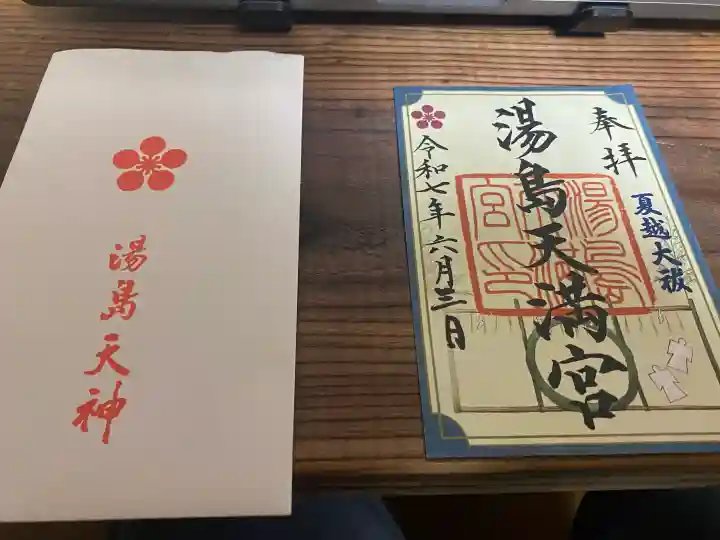 湯島天神
奉拝
夏越大祓
湯島天満宮
令和七年六月三日